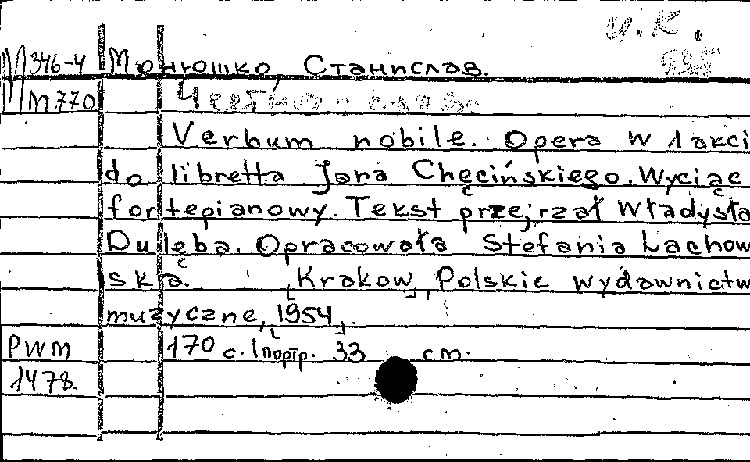 и.К.
М346-4 Монюшко, Станислав.
М770 Честно слово
Verbum nobile. Opera w 1 akci
do libretta Jana Chęcińskiego. Wyciąc
fortepianowy. Tekst przejrzał Władysła
Dulęba. Opracowała Stefania Lachow
ska. [Krakow], Polskie wydawnictw
muzyczne, [1954].
PWM 170 с. 1 портр. 33 cm.
1478.